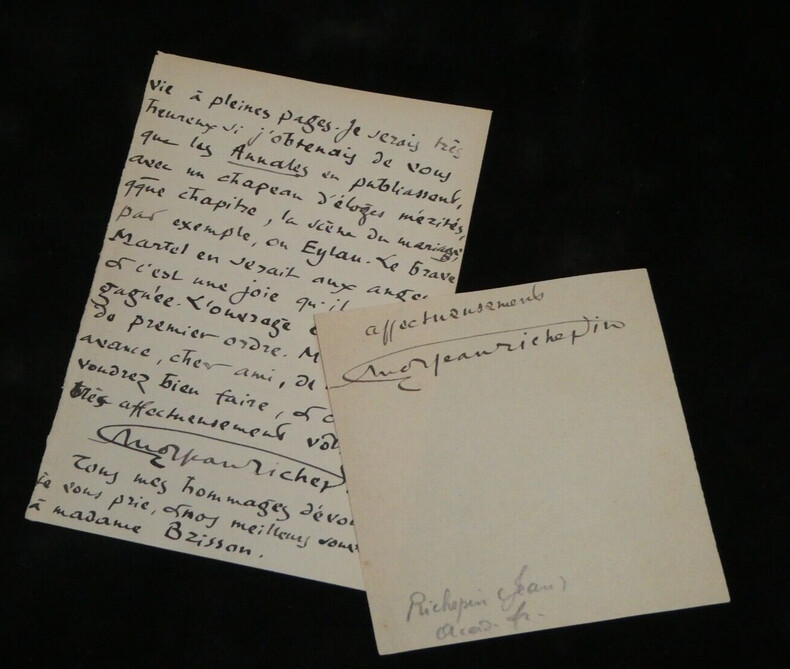 vie à pleines pages. Je serais très
heureux si j'obtenais de vous
que les Annales en publiassent,
avec un chapeau d'éloges mérités,
qque chapitre, la scène du mariage,
par exemple, ou Eylau. Le brave
Martel en serait aux ange
et c'est une joie qu'il
gagnée. L'ouvrage e
de premier ordre. M
avance, cher ami, de
voudrez bien faire, et c
très affectueusement vot
Jean Richep
Tous mes hommages dévo
je vous prie, et nos meilleurs souv
à madame Brisson.
affectueusement
Jean Richepin
Richepin (Jean)
Acad. fr.